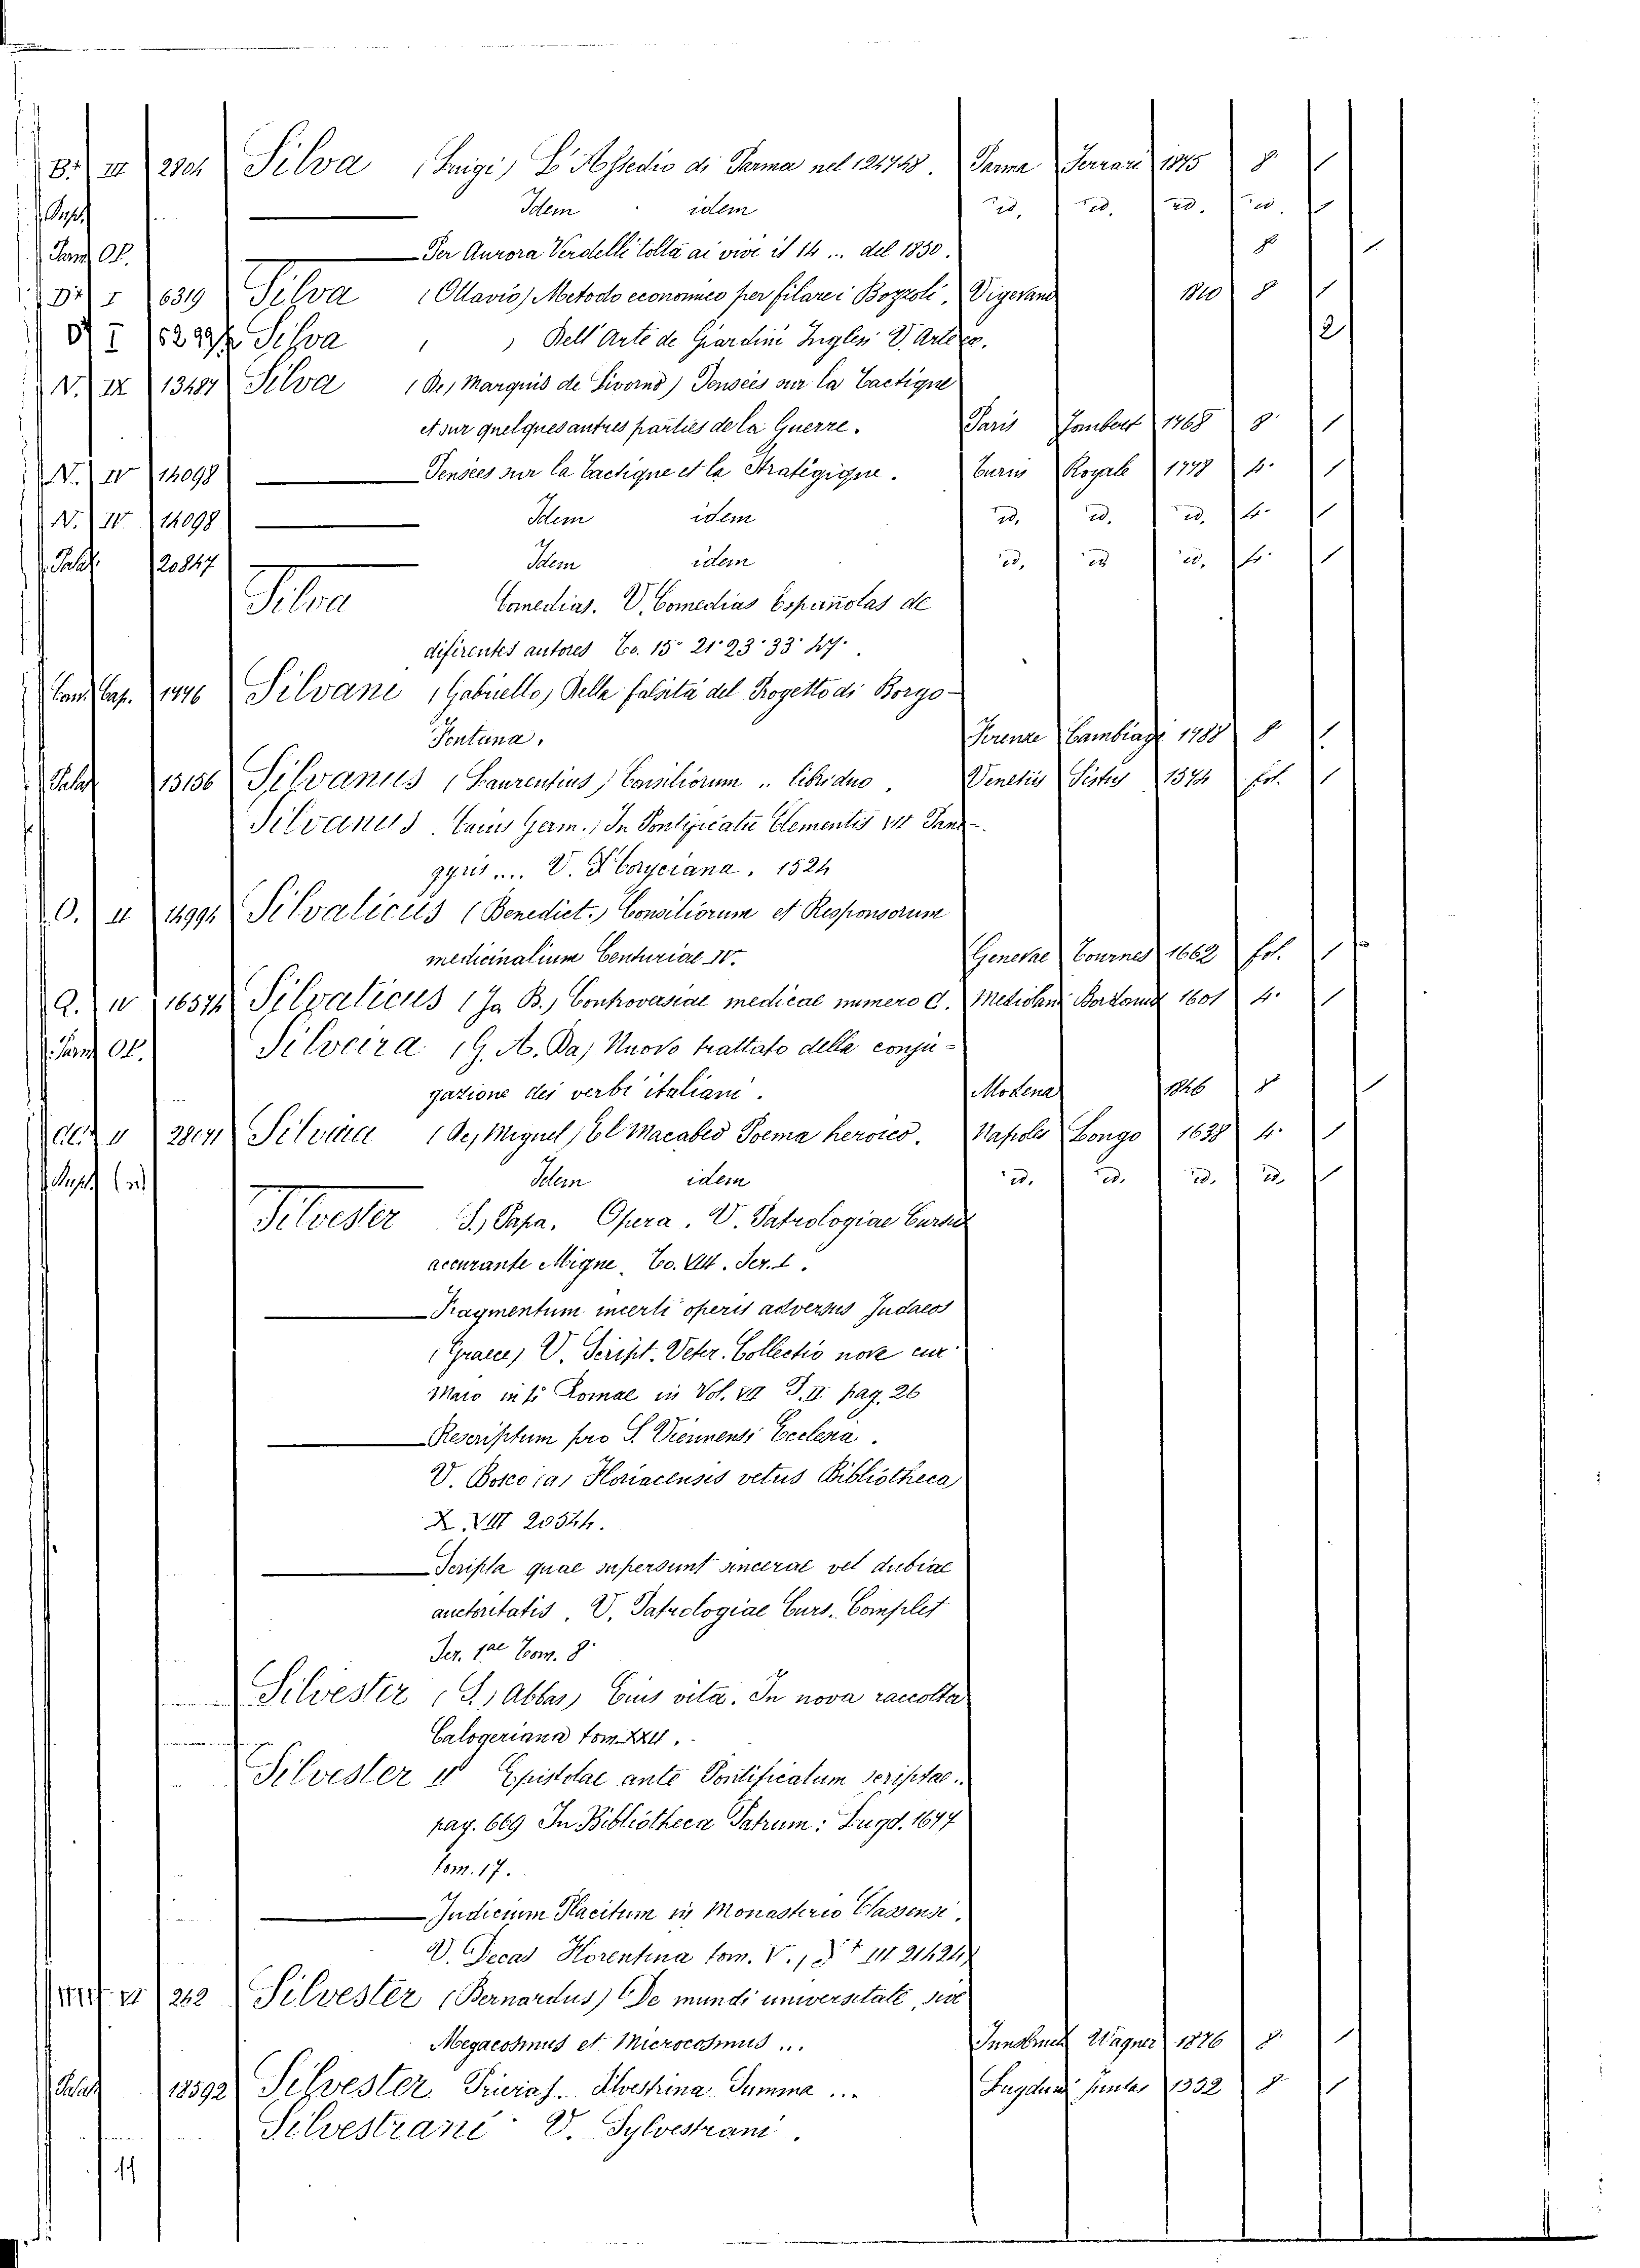 B.r III 2304 Silva (Luigi) L'Assedio di Parma nel 124748. Parma Ferrari 1845 8
Idem idem id. id. id. id.
Parm Of. Per Aurora Verdelli tolta ai vivi il 14 ... del 1830. 8 1
I 6319 Silva (Ottavio) Metodo economico per filare i Bozzoli, Vigevano 1810 8
I Silva Dell'Arte de Giardini Inglesi V. Arte 2
N. IX 13487 Silva (De, Marquis de Livorno) Pensées sur la Tactique
et sur quelques autres parties de la Guerre. Paris Jombert 1768 8 1
N. IV 14098 Pensées sur la Tactique et la Stratégique. Turin Royale 1778 4. 1
N. IV. 14098 Idem idem id. id. id. 4. 1
Palat. 20847 Idem idem id. id. id. 4. 1
Silva Comedias. V. Comedias Españolas de
diferentes autores To. 15. 21. 23. 33.
1776 Silvani (Gabriello) Della falsità del Progetto di Borgo-
Fontana. Firenze Cambiagi 1788 8 1
Palat 13156 Silvanus (Laurentius) Consiliorum .. Libri duo, Venetiis 1574 fol. 1
Silvanus. Caius Germ., In Pontificatu Clementis VII Pane-
gyris ... V. Coryciana. 1524
O. II 14991 Silvaticus (Benedict.) Consiliorum et Responsorum
medicinalium Centuriae IV. Genevae Tournes 1662 fol. 1
Q. IV 16574 Silvaticus (Jo B.) Controversiae medicae numero C. Mediolani 1601 4. 1
Parm Of. Silveira (G. A. Da) Nuovo trattato della conju-
gazione dei verbi italiani. Modena 1826 8 1
Silveira (De, Miguel) El Macabeo Poema heroico. Napoles Longo 1638 4. 1
Idem idem id. id. id. id. 1
Silvester S., Papa. Opera. V. Patrologiae Cursus
accurante Migne. To. VIII. Ser. I.
Fragmentum incerti operis adversus Judaeos
(Graece) V. Script. Veter. Collectio nova cur
Maio in 4 Romae in Vol. VII P. II. pag. 26
Rescriptum pro S. Viennensi Ecclesia.
V. Bosco (a) Floriacensis vetus Bibliotheca
X. VIII 20544.
Scripta quae supersunt sincerae vel dubiae
auctoritatis. V. Patrologiae Curs. Complet
Ser. 1ae Tom. 8.
Silvester (S., Abbas) Eius vita. In nova raccolta
Calogeriana tom. XXII.
Silvester II Epistolae ante Pontificatum scriptae.
pag. 669 In Bibliotheca Patrum: Lugd. 1677
tom. 17.
Judicium Placitum in Monasterio Classensi.
V. Decas Florentina tom. V.
242 Silvester (Bernardus) De mundi universitate, sive
Megacosmus et Microcosmus ... Innsbruck Wagner 1876 8. 1
Palat 18592 Silvester Prierias. Silvestrina Summa ... Lugduni Juntas 8 1
Silvestrani V. Sylvestrani.